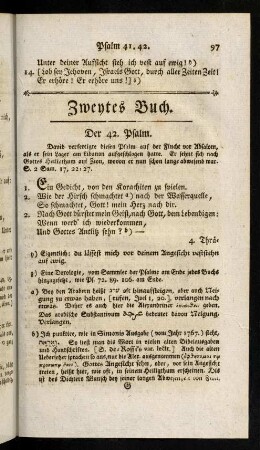 Psalm 41. 42.
97
Unter deiner Aufsicht steh ich vest auf ewig! y)
14. Lob sey Jehoven, Israels Gott, durch aller Zeiten Zeit!
Er erhöre! Er erhöre uns! z)
Zweytes Buch.
Der 42. Psalm.
David verfertigte diesen Psalm auf der Flucht vor Absalon,
als er sein Lager am Libanon aufgeschlagen hatte. Er sehnt sich nach
Gottes Heiligthum auf Zion, wovon er nun schon lange abwesend war.
S. 2 Sam. 17, 22: 27.
1. Ein Gedicht, von den Korachiten zu spielen.
2. Wie der Hirsch schmachtet a) nach der Wasserquelle,
So schmachtet, Gott! mein Herz nach dir.
2. Nach Gott dürstet mein Geist, nach Gott, dem lebendigen:
Wenn werd' ich wiederkommen,
Und Gottes Antlitz sehn? b) —
4. Thrä-
y) Eigentlich: du lässest mich vor deinem Angesicht veststehen
auf ewig.
z) Eine Doxologie, vom Sammler der Psalme am Ende jedes Buchs
hinzugesetzt, wie Ps. 72. 89. 106. am Ende.
a) Bey den Arabern heißt
Neigung zu etwas haben,
dazu. Auch hier haben die Alexandriner
Das arabische Substantivum bedeutet davon Neigung,
Verlangen.
b) Ich punktire, wie in Simonis Ausgabe (vom Jahr 1767.) steht,
So ließt man das Wort in vielen alten Bibelausgaben
und Handschriften. [S. de-Rossi's var. lectt.] Auch die alten
Uebersetzer
Gottes Angesicht sehen, oder, vor seinem Angesicht
treten, heißt hier, wie oft, in seinem Heiligthum erscheinen. Dis ist
des Dichters Wunsch bey seiner langen Abwesenheit von Zion.
G